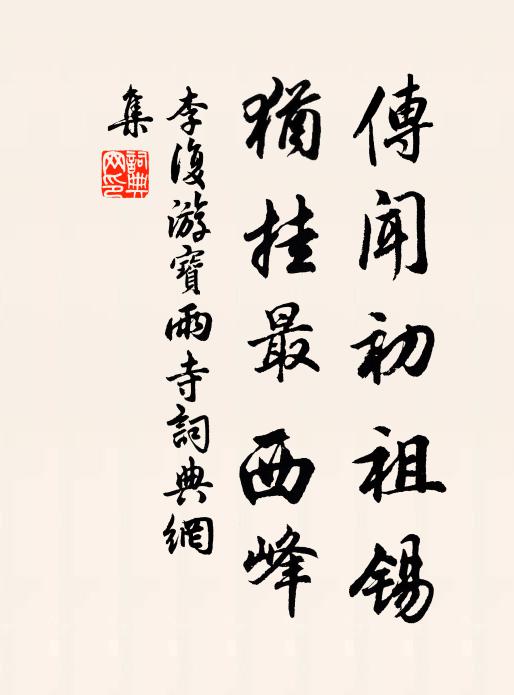 傳聞初祖錫
猶挂最西峰
李復游寶雨寺詞典網
集
詞典網印